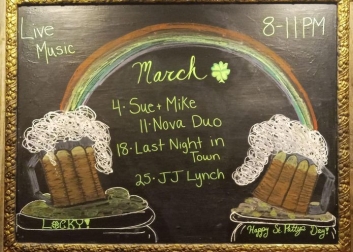 Live
Music
8-11PM
March
4-Sue + Mike
11-Nova Duo
18-Last Night in
Town
25-JJ Lynch
LUCKY!
Happy St. Pattys Day!